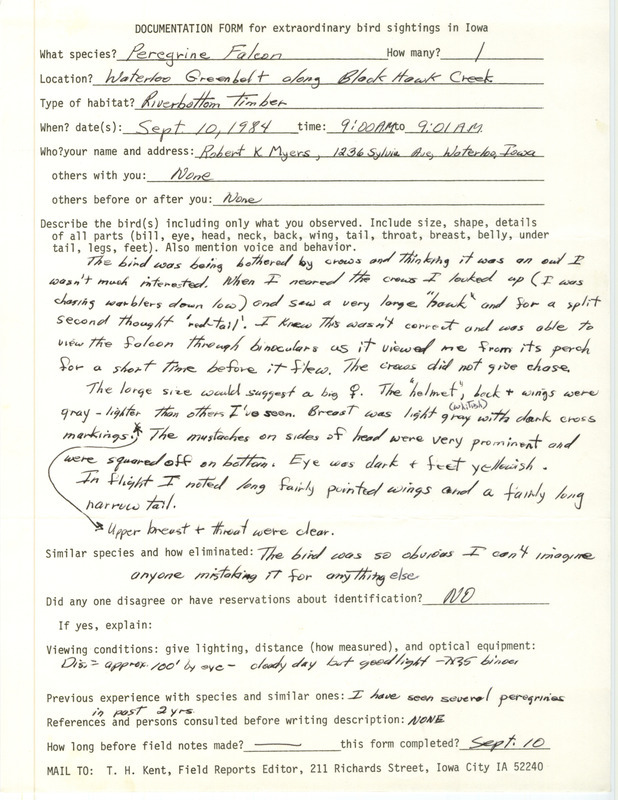 DOCUMENTATION FORM for extraordinary bird sightings in Iowa
What species? Peregrine Falcon How many? 1
Location? Waterloo Greenbelt along Black Hawk Creek
Type of habitat? Riverbottom Timber
When? date(s): Sept 10, 1984 time: 9:00AM to 9:01 A.M.
Who?your name and address: Robert K Myers, 1236 Sylvia Ave, Waterloo, Iowa
others with you: None
others before or after you: None
Describe the bird(s) including only what you observed. Include size, shape, details
of all parts (bill, eye, head, neck, back, wing, tail, throat, breast, belly, under
tail, legs, feet). Also mention voice and behavior.
The bird was being bothered by crows and thinking it was an owl I
wasn't much interested. When I neared the crows I looked up (I was
chasing warblers down low) and saw a very large "hawk" and for a split
second thought 'red-tail'. I knew this wasn't correct and was able to
view the falcon through binoculars as it viewed me from its perch
for a short time before it flew. The crows did not give chase.
The large size would suggest a big ♀. The "helmet", back + wings were
gray - lighter than others I've seen. Breast was light gray (whitish) with dark cross
markings.* The mustaches on sides of head were very prominent and
were squared off on bottom. Eye was dark + feet yellowish.
In flight I noted long fairly pointed wings and a fairly long
narrow tail.
* Upper breast + throat were clear.
Similar species and how eliminated: The bird was so obvious I can't imagine
anyone mistaking it for anything else
Did any one disagree or have reservations about identification? NO
If yes, explain:
Viewing conditions: give lighting, distance (how measured), and optical equipment:
Dis. = approx. 100' by eye - cloudy day but good light - 7x35 binoc
Previous experience with species and similar ones: I have seen several peregrines
in past 2 yrs.
References and persons consulted before writing description: NONE
How long before field notes made? —— this form completed? Sept. 10
MAIL TO: T. H. Kent, Field Reports Editor, 211 Richards Street, Iowa City IA 52240